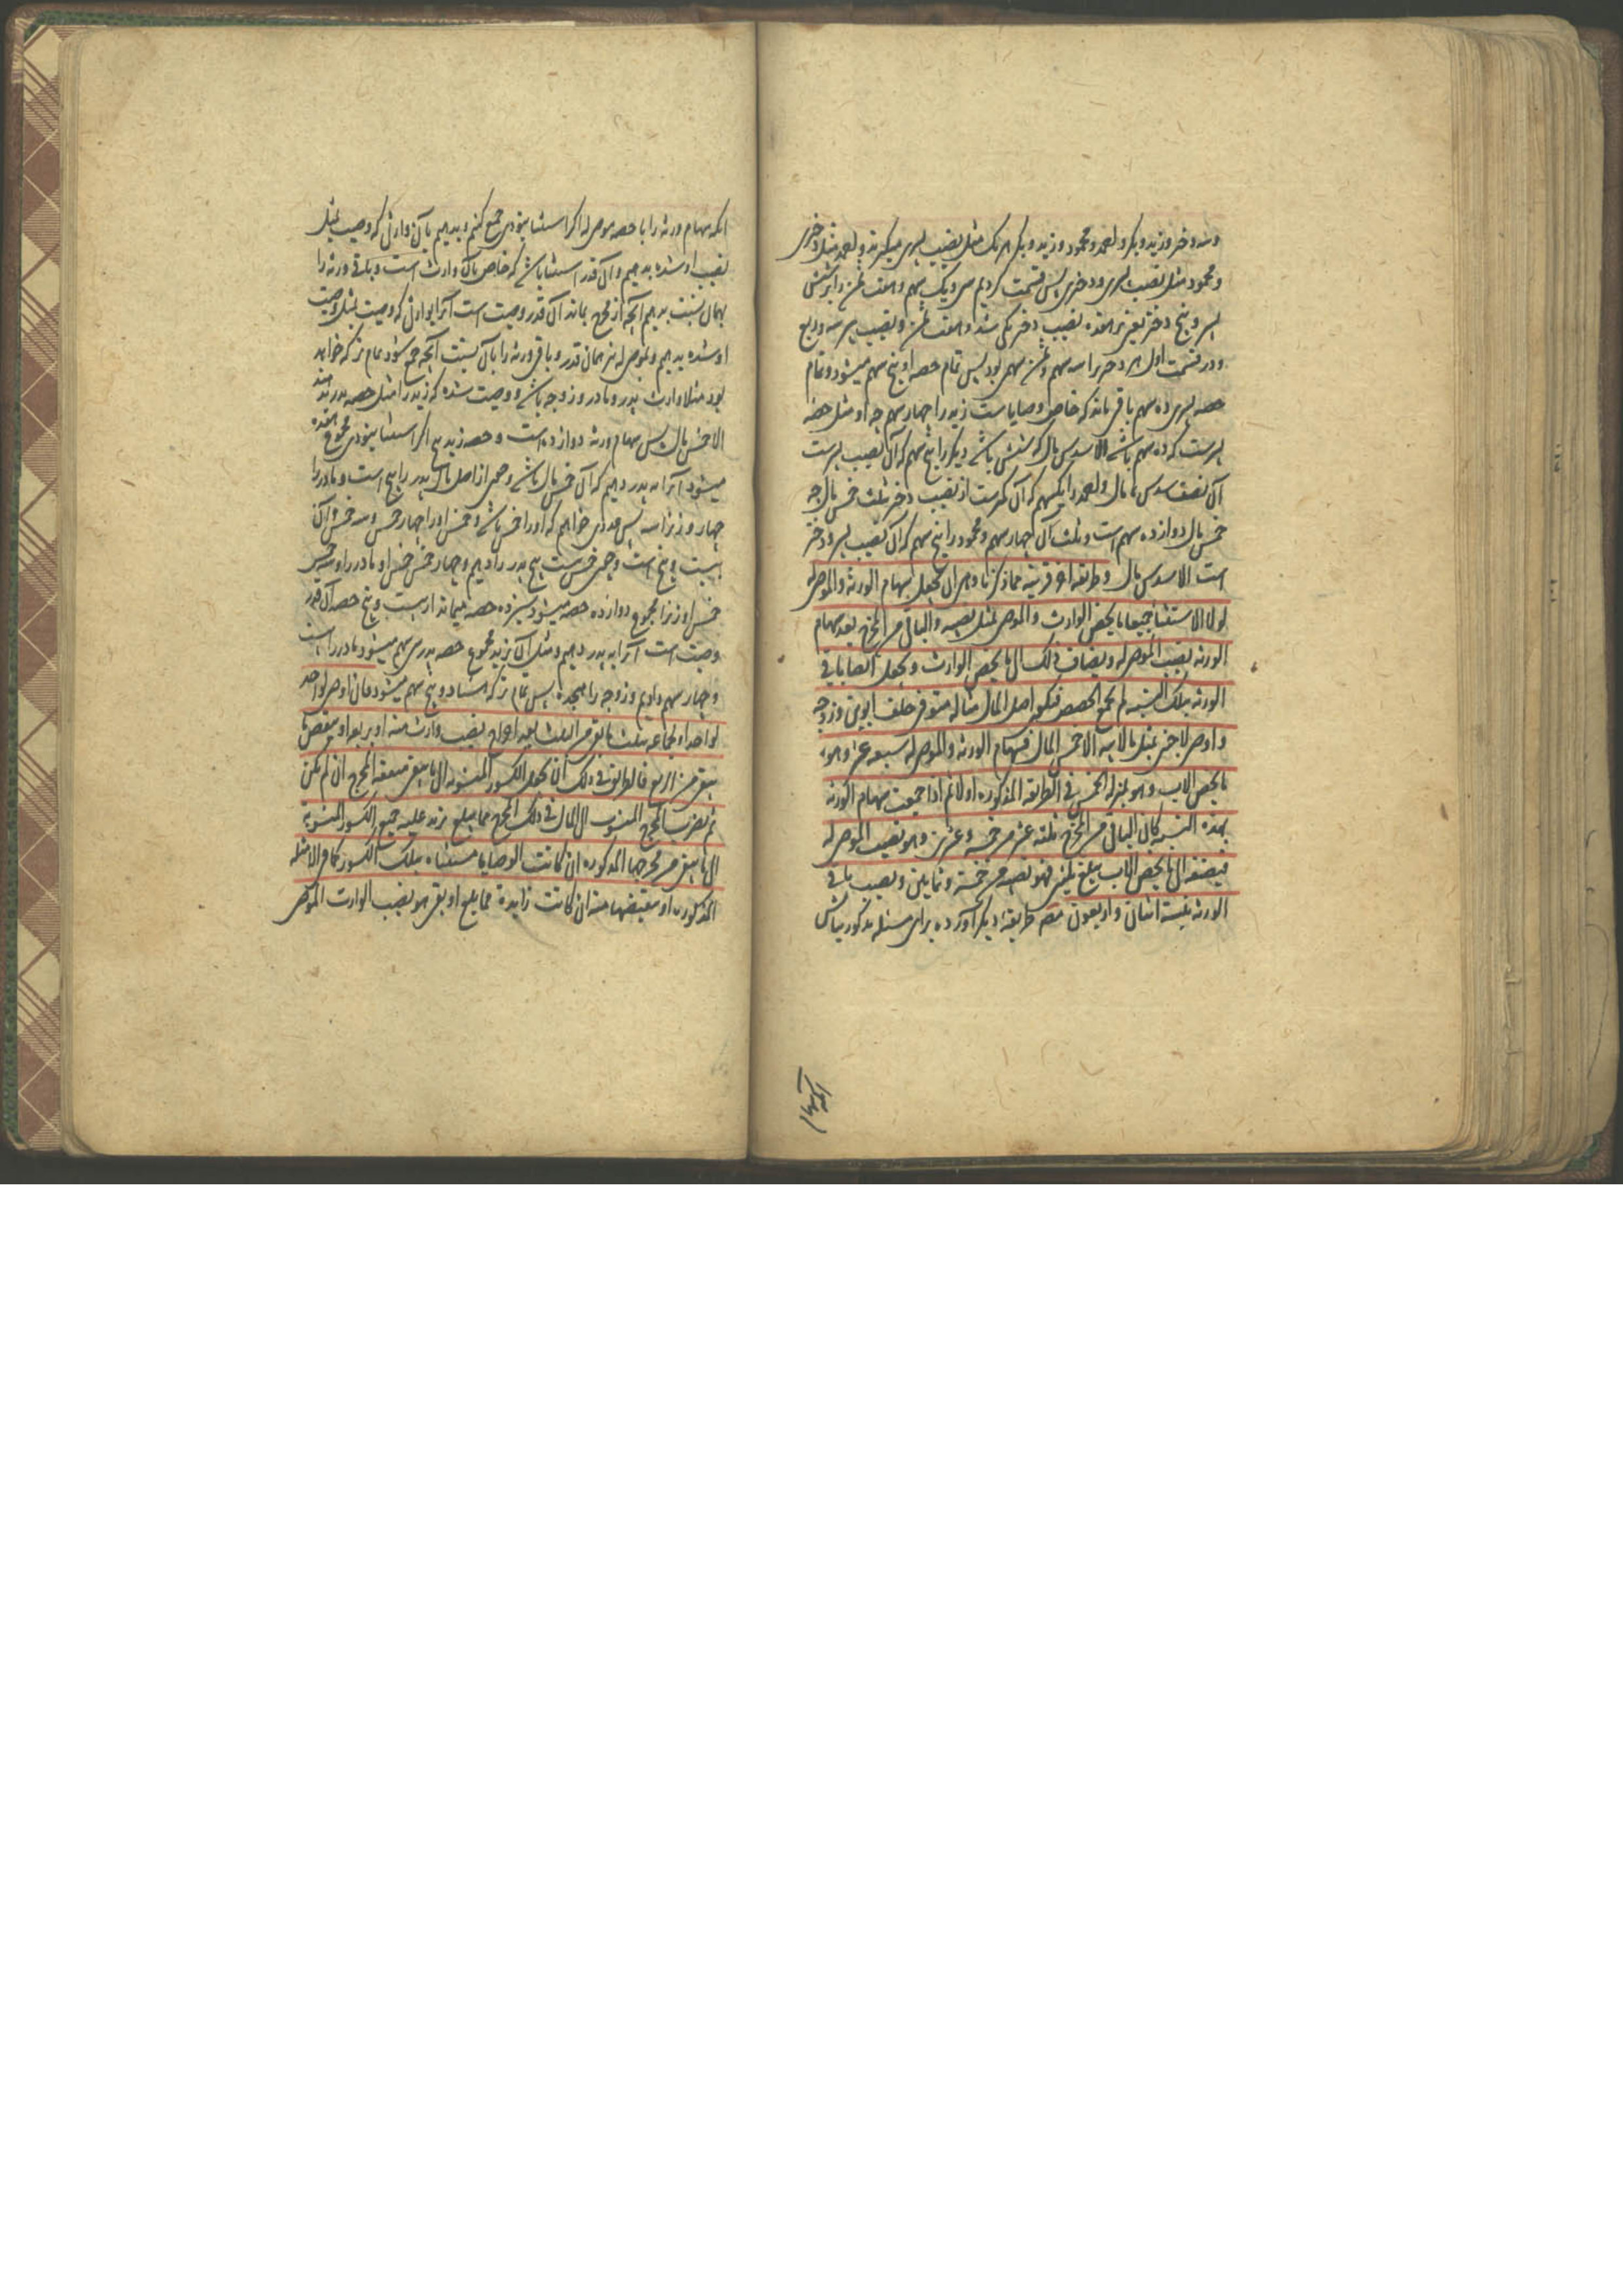 و سه دختر و زید و بکر و لعمرو محمود و زید و بکر هر یک مثل نصیب پسری میگیرند و لعمرو مثل دختری
و محمود مثل نصیب پسری و دختری پس قسمت کردیم سی و یک سهم و هفت ثمن را بر شش
پسر و پنج دختر یعنی بر هفده نصیب دختر یکی شد و هفت ثمن و نصیب پسر سه و ربع
و در قسمت اول هر دختر را سه سهم و ثمن سهمی بود پس تمام حصه او پنج سهم میشود و تمام
حصه پسری ده سهم باقی ماند که خاص وصایاست زید را چهار سهم چه او مثل حصه
پسرست که ده سهم باشد الا سدس مال که شش باشد و بکر را پنج سهم که آن نصیب پسرست
الا نصف سدس مال و لعمرو را یکسهم که آن کمرست از نصیب دختر بثلث خمس مال چه
خمس مال دوازده سهم است و ثلث آن چهار سهم و محمود را پنج سهم که آن نصیب پسر و دختر
است الا سدس مال و طریقه اخری قریبه مما ذکرنا و هی ان تجعل سهام الورثه و الموصی له
لولا الاستثنا جمیعا ما یخص الوارث و الموصی بمثل نصیبه و الباقی من المخرج بعد سهام
الورثه نصیب الموصی له و یضاف ذلک الی ما یخص الوارث و تجعل انصبا باقی
الورثه بتلک النسبه ثم تجمع الحصص فتکون اصل المال مثاله متوفی خلف ابوین و زوجه
و اوصی لاجنبی بمثل ما لابیه الا خمس المال فسهام الورثه و الموصی له سبعه عشر و هو
ما یخص الاب و هو بمنزله الخمس فی الطریقه المذکوره اولا ثم اذا جمعت سهام الورثه
بهذه النسبه کان الباقی من المخرج ثلثه عشر من خمسه و عشرین و هو نصیب الموصی له
فیضفه الی ما یخص الاب یبلغ ثلثین فهو نصیبه من خمسه و ثمانین و نصیب باقی
الورثه بنسبته اثنان و اربعون مصنف طریقه دیگر آورده برای مسئله مذکور بیانش
آنکه سهام ورثه را با حصه موصی له اگر استثنا نبودی جمع کنیم و بدهیم بآن وارثی که وصیت بمثل
نصیب او شده بدهیم و آن قدر استثنا باشد که خاص بآن وارث است و باقی ورثه را
بهمان نسبت بدهیم آنچه از مخرج بماند آن قدر وصیت است آنرا بوارثی که وصیت بمثل وصیت
او شده بدهیم و بموصی له نیز همان قدر و باقی ورثه را بآن نسبت آنچه جمع شود تمام ترکه خواهد
بود مثلا وارث پدر و مادر و زوجه باشد و وصیت شده که زید را مثل حصه پدر بدهند
الا خمس مال پس سهام ورثه دوازده است و حصه زید پنج اگر استثنا نبودی مجموع هفده
میشود آنرا به پدر دهیم که آن خمس مال باشد و چون از اصل مال پدر را پنج است و مادر را
چهار و زن را سه پس عددی خواهیم که او را خمس باشد و خمس او را چهار خمس و سه خمس و آن
بیست و پنج است و چون خمس ست پنج پدر را دهیم و چهار خمس خمس او مادر را و سه خمس
خمس او زن را مجموع دوازده حصه میشود سیزده حصه میماند از بیست و پنج حصه آن قدر
وصیت است آنرا به پدر دهیم و مثل آن بزید مجموع حصه پدر سی سهم میشود مادر را بیست
و چهار سهم دادیم و زوجه را هیجده پس تمام ترکه هشتاد و پنج سهم میشود فان اوصی لواحد
لواحد او لجماعه بثلث ما بقی من الثلث بعد اخراج نصیب وارث منه او بربعه او ببعض ما
یبقی من الربع فالطریق فی ذلک ان تجعل الکسور المنسوبه الی ما یبقی متفقه المخرج ان لم تکن
ثم تضرب المخرج المنسوب الی المال فی ذلک المخرج فما یبلغ نزید علیه جمیع الکسور المنسوبه
الی ما یبقی من مخرجها المذکوره ان کانت الوصایا مستثناه بتلک الکسور کما فی الامثله
المذکوره او ننقصها منه ان کانت زایده فما یبلغ او بقی هو نصیب الوارث الموصی